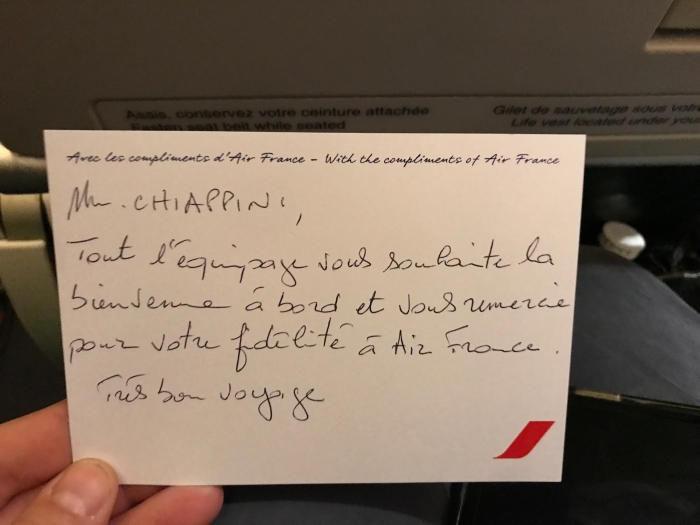 Assis, conservez votre ceinture attachée
Fasten seat belt while seated
Gilet de sauvetage sous votre
Life vest located under your
Avec les compliments d'Air France - With the compliments of Air France
Mr. CHIAPPINI,
Tout l'équipage vous souhaite la
bienvenue à bord et vous remercie
pour votre fidélité à Air France.
Très bon voyage